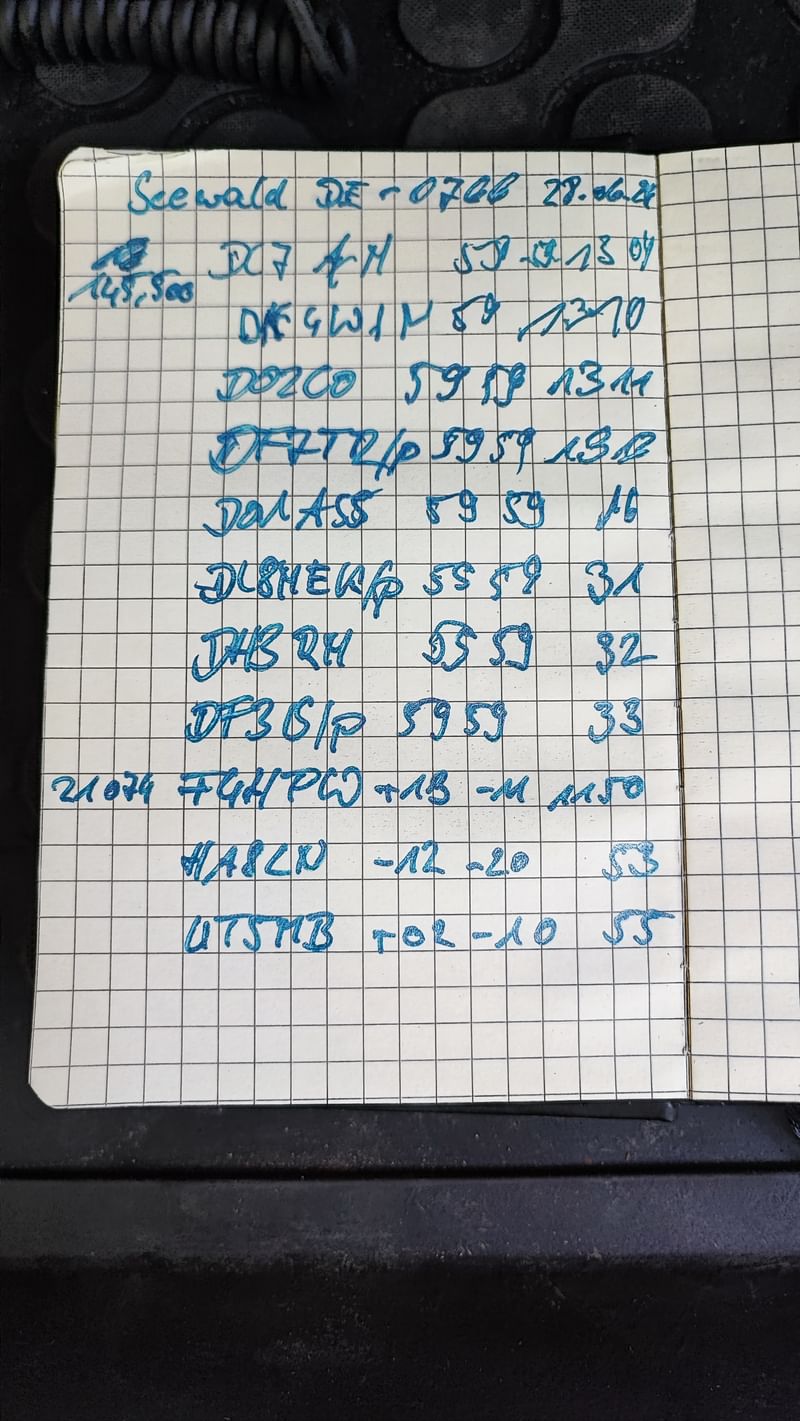 Seewald DE - 0766 28.06.
DC7 59 59 13 04
145,500
59 1310
DO2CO 59 59 1311
DF7TR/p 59 59 1312
DO1ASS 59 59 16
DL8MEK/p 55 59 31
DH3RM 55 59 32
DF3G/p 59 59 33
21074 F4HPW +13 -11 1150
HA8LN -12 -20 53
UT5MB +02 -10 55